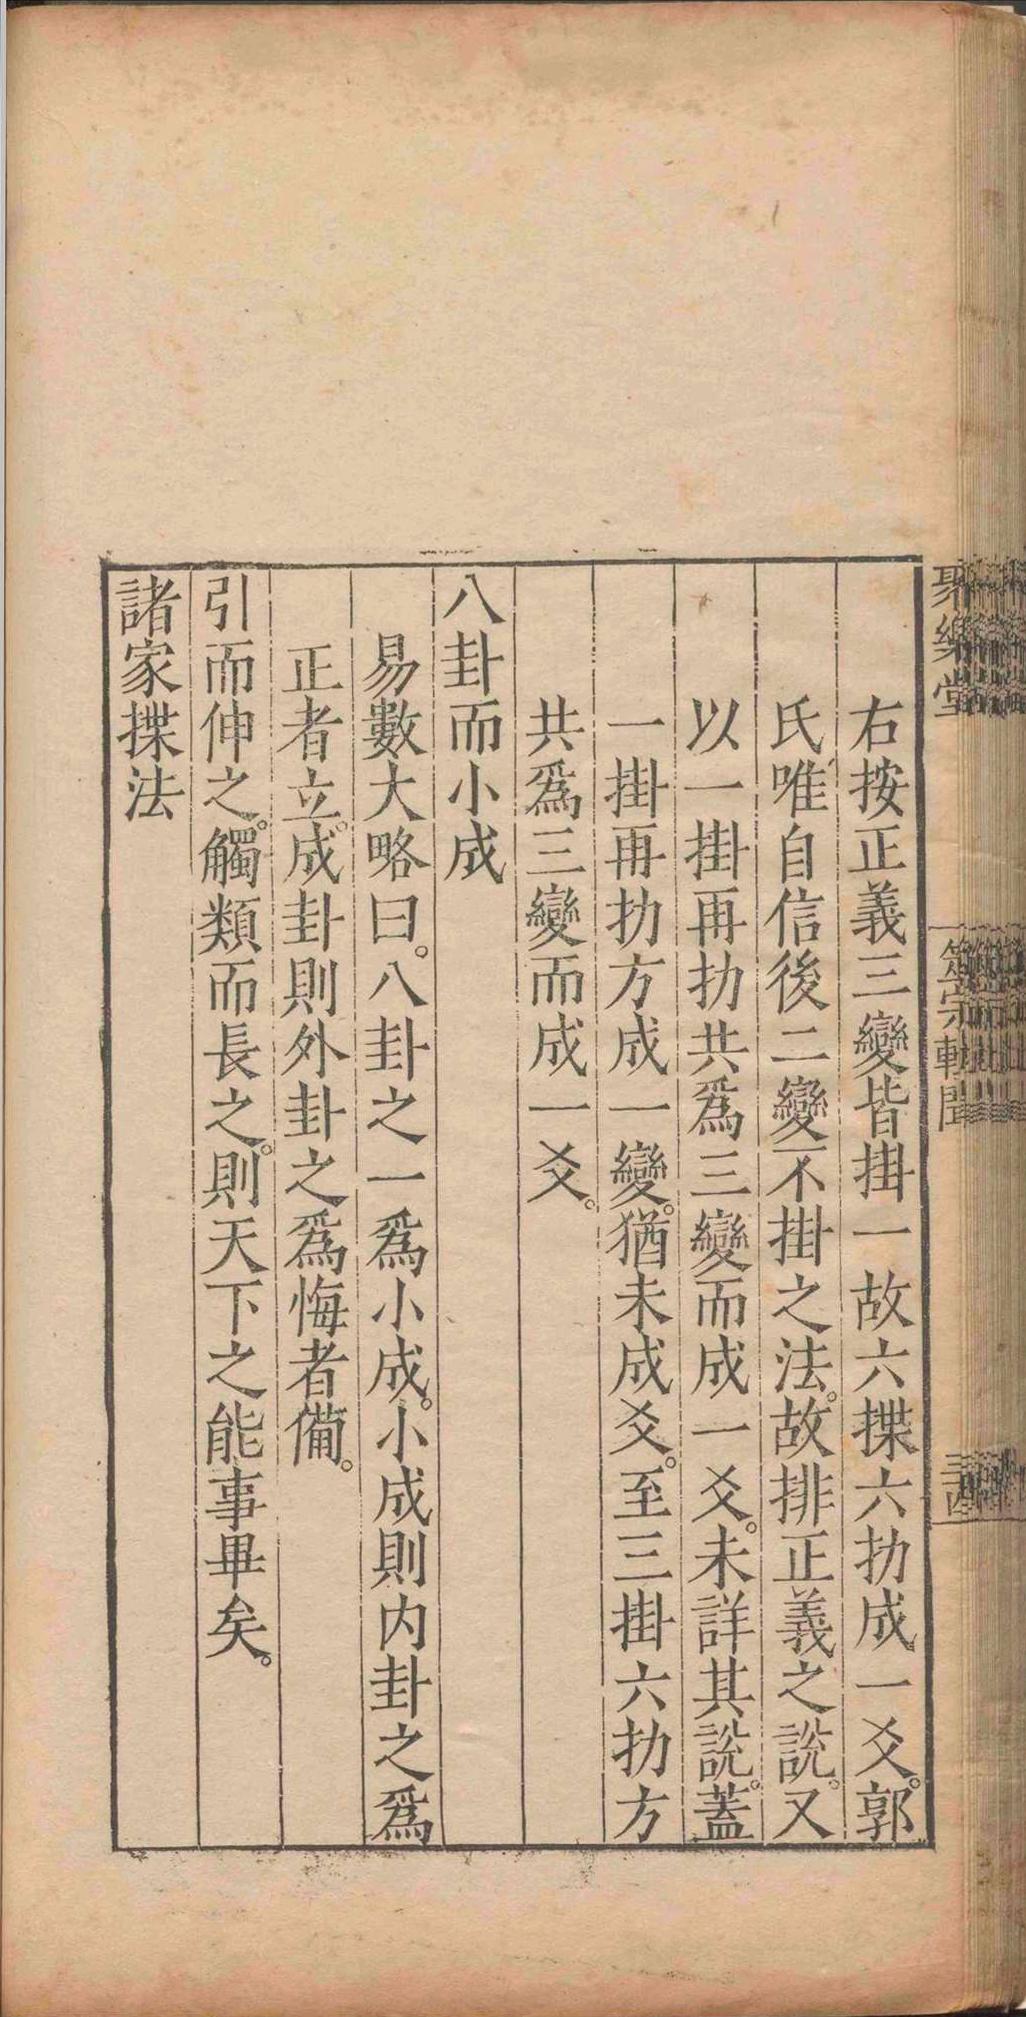 右按正義三變皆掛一故六揲六扐成一爻。郭
氏唯自信後二變不掛之法。故排正義之說。又
以一掛再扐共爲三變而成一爻。未詳其說。蓋
一掛再扐方成一變。猶未成爻。至三掛六扐方
共爲三變而成一爻。
八卦而小成
易數大略曰。八卦之一爲小成。小成則内卦之爲
正者立。成卦則外卦之爲悔者備。
引而伸之。觸類而長之。則天下之能事畢矣。
諸家揲法
聚樂堂
筮宗
三四